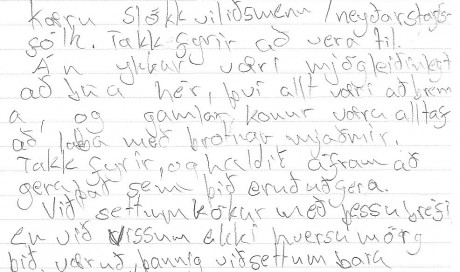 Kæru slökkviliðsmenn/neyðarstogs-
fólk. Takk fyrir að vera til.
Án ykkar væri mjög leiðinlegt
að búa hér, því allt væri að bren
a, og gamlar konur væru alltaf
að labba með brotnar mjaðmir.
Takk fyrir, og haldit áfram að
gera það sem þið eruð að gera.
Við settum kökur með þessu bréfi
en við vissum ekki hversu mörg
þið væruð, þannig við settum bara